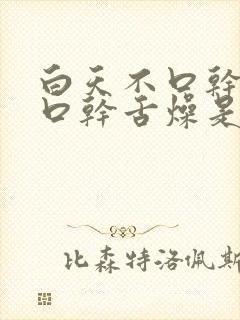 白天不口幹
口幹舌燥是
比森特洛佩斯